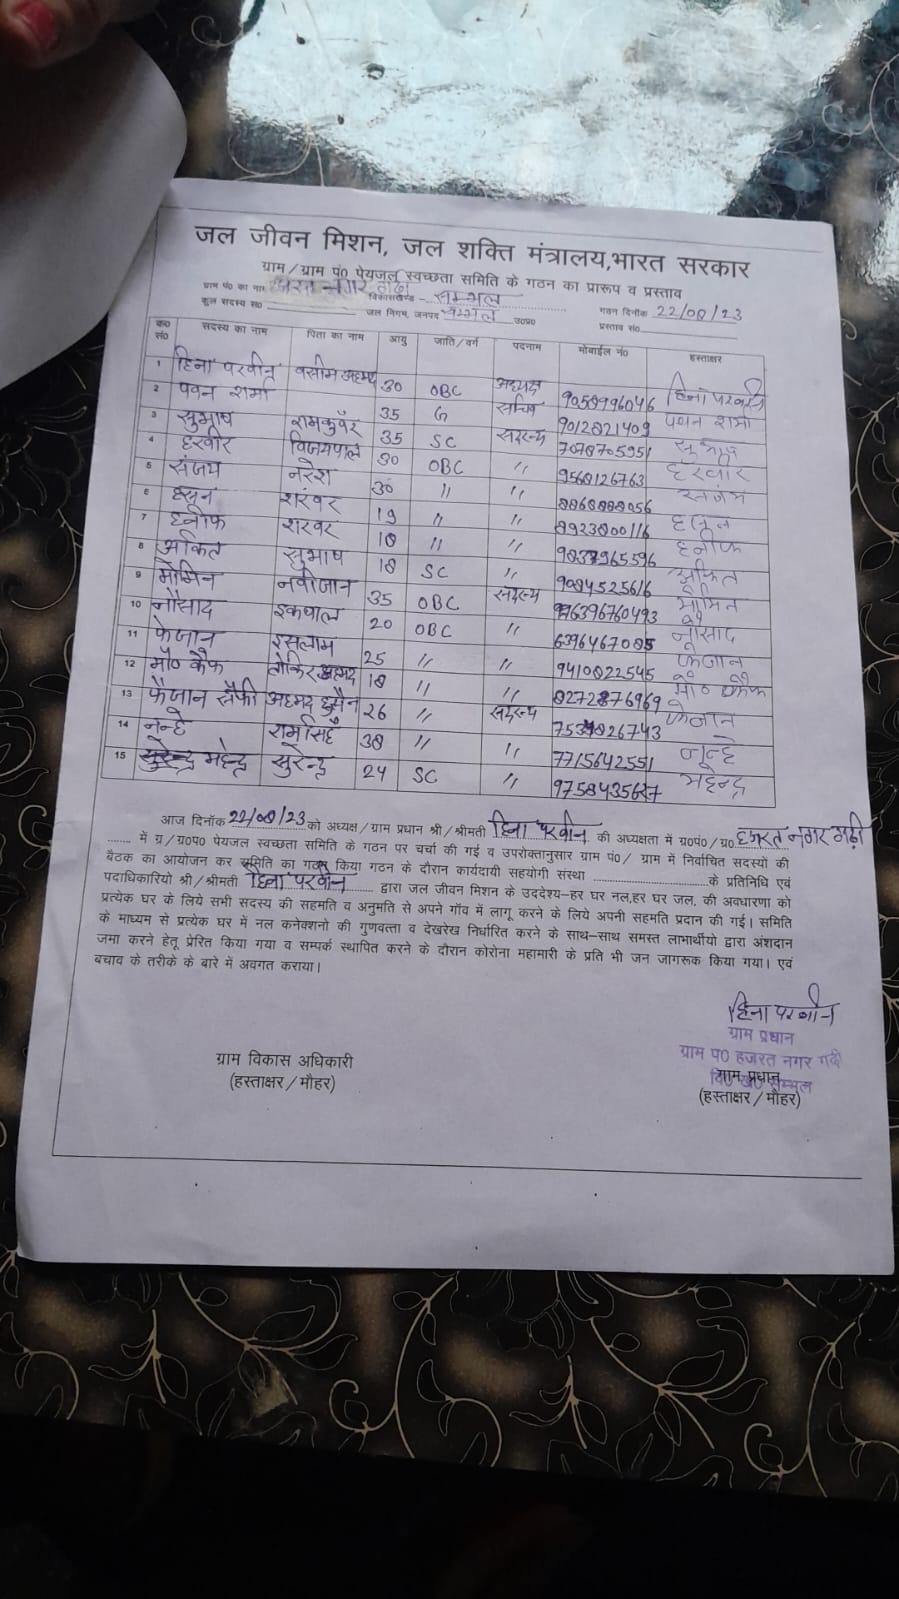 जल जीवन मिशन, जल शक्ति मंत्रालय,भारत सरकार
ग्राम/ग्राम पं0 पेयजल स्वच्छता समिति के गठन का प्रारूप व प्रस्ताव
ग्राम पं0 का नाम हजरत नगर गढ़ी विकासखण्ड - सम्भल गठन दिनॉक 22/08/23
कुल सदस्य सं0 जल निगम, जनपद सम्भल उ0प्र0 प्रस्ताव सं0
क्र0 सं0 सदस्य का नाम पिता का नाम आयु जाति/वर्ग पदनाम मोबाईल नं0 हस्ताक्षर
1 हिना परवीन वसीम अहमद 30 OBC अध्यक्ष 9058996046 हिना परवीन
2 पवन शर्मा 35 G सचिव 9012821409 पवन शर्मा
3 सुभाष रामकुँवर 35 SC सदस्य 7078705951 सुभाष
4 हरवीर विजयपाल 30 OBC // 9568126763 हरवीर
5 संजय नरेश 30 // // संजय
6 हसन शरवर 19 // // 8923800116
7 हनीफ शरवर 18 // // हनीफ
8 अंकित सुभाष 18 SC // 9084525616 अंकित
9 मोमिन नवीजान 35 OBC सदस्य मोमिन
10 नौसाद इकबाल 20 OBC // नौसाद
11 फैजान इसलाम 25 // // 9410822545 फैजान
12 मौ0 कैफ अहमद 18 // // 8272876969 मौ0 कैफ
13 फैजान सैफी अहमद हुसैन 26 // सदस्य फैजान
14 नन्हे रामसिंह 38 // // 7715642551 नन्हे
15 महेन्द्र सुरेन्द्र 24 SC // महेन्द्र
आज दिनॉक 22/08/23 को अध्यक्ष/ग्राम प्रधान श्री/श्रीमती हिना परवीन की अध्यक्षता में ग्र0पं0/ग्र0 हजरत नगर गढ़ी
....... में ग्र/ग्र0प0 पेयजल स्वच्छता समिति के गठन पर चर्चा की गई व उपरोक्तानुसार ग्राम पं0/ ग्राम में निर्वाचित सदस्यों की
बैठक का आयोजन कर समिति का गठन किया गठन के दौरान कार्यदायी सहयोगी संस्था ........................के प्रतिनिधि एवं
पदाधिकारियो श्री/श्रीमती हिना परवीन ....... द्वारा जल जीवन मिशन के उददेश्य-हर घर नल,हर घर जल, की अवधारणा को
प्रत्येक घर के लिये सभी सदस्य की सहमति व अनुमति से अपने गॉव में लागू करने के लिये अपनी सहमति प्रदान की गई। समिति
के माध्यम से प्रत्येक घर में नल कनेक्शनो की गुणवत्ता व देखरेख निर्धारित करने के साथ-साथ समस्त लाभार्थीयो द्वारा अंशदान
जमा करने हेतू प्रेरित किया गया व सम्पर्क स्थापित करने के दौरान कोरोना महामारी के प्रति भी जन जागरूक किया गया। एवं
बचाव के तरीके के बारे में अवगत कराया।
हिना परवीन
ग्राम प्रधान
ग्राम प0 हजरत नगर गढ़ी
वि0 ख0 सम्भल
ग्राम विकास अधिकारी ग्राम प्रधान
(हस्ताक्षर/मौहर) (हस्ताक्षर/मौहर)